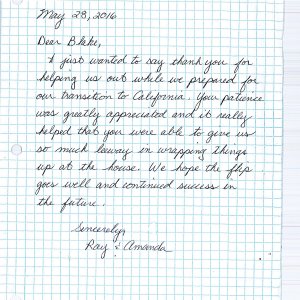 May 23, 2016
Dear Blake,
I just wanted to say thank you for
helping us out while we prepared for
our transition to California. Your patience
was greatly appreciated and it really
helped that you were able to give us
so much leeway in wrapping things
up at the house. We hope the flip
goes well and continued success in
the future.
Sincerely,
Ray & Amanda